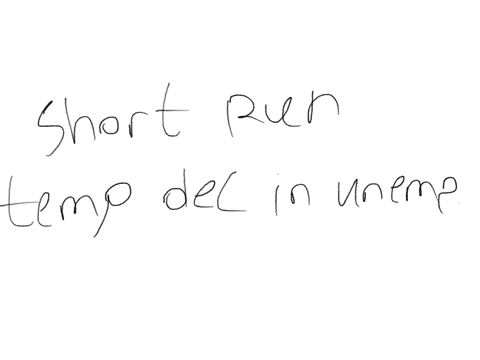 short Run
temp dec in unemp